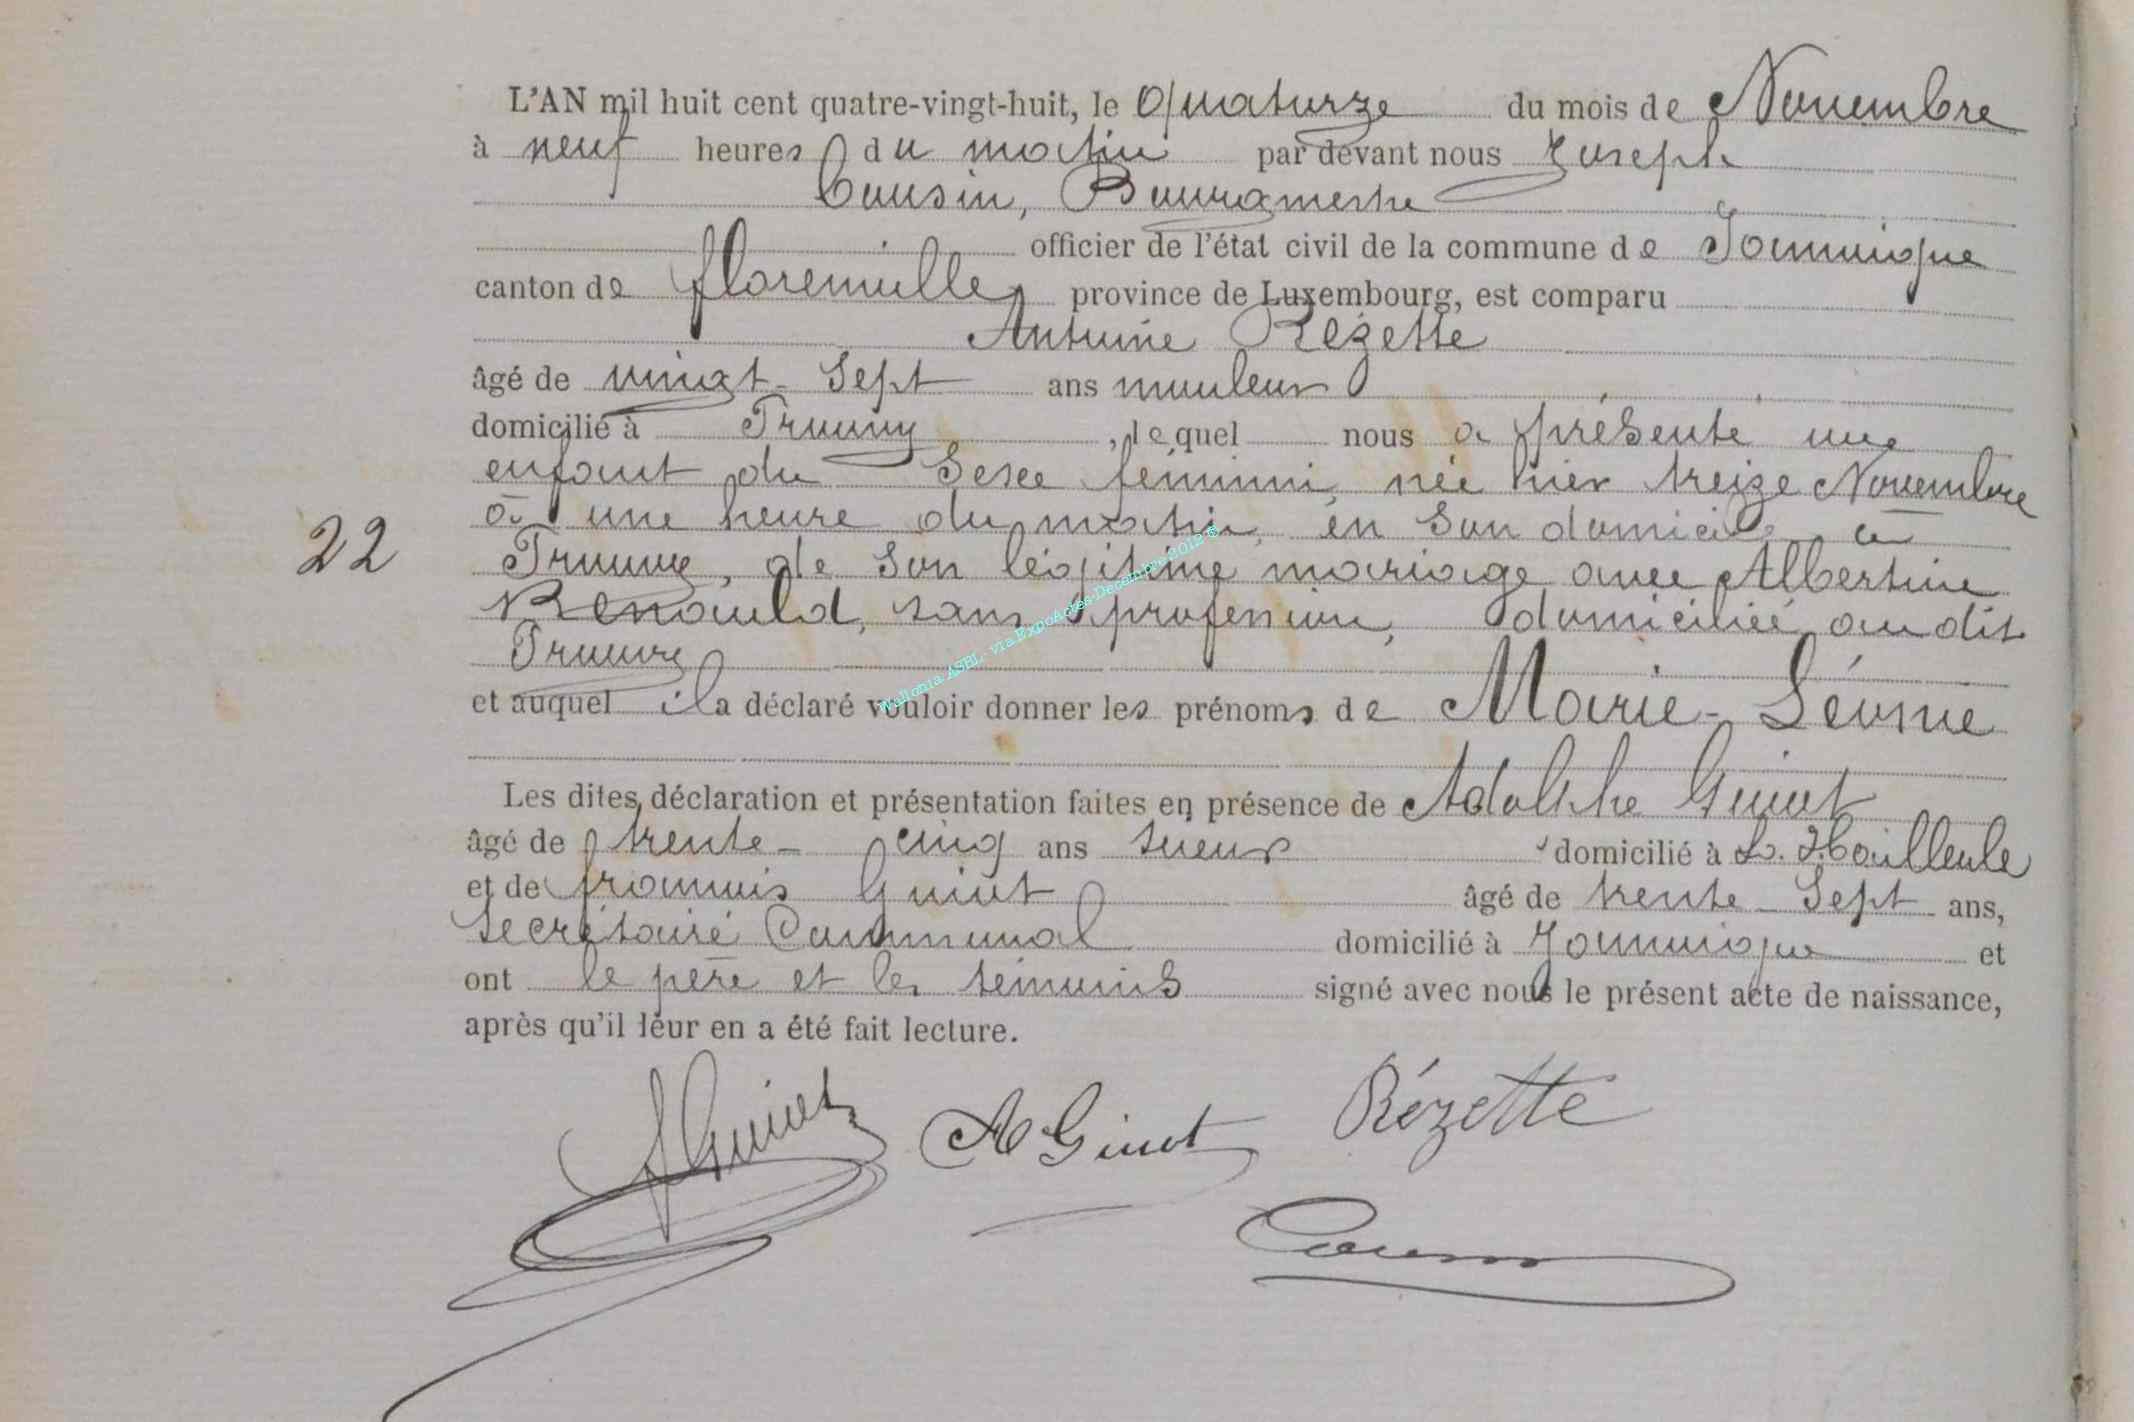 L'AN mil huit cent quatre-vingt-huit, le Quatorze du mois de Novembre
à neuf heures du matin par devant nous Joseph
Cousin, Bourgmestre
officier de l'état civil de la commune de Jamoigne
canton de florenville province de Luxembourg, est comparu
Antoine Rézette
âgé de vingt-sept ans mouleur
domicilié à Prouvy, lequel nous a présenté une
enfant du Sexe féminin, née hier treize Novembre
à une heure du matin, en son domicile à
22
Prouvy, de son légitime mariage avec Albertine
Renauld, sans profession, domiciliée au dit
Prouvy
et auquel il a déclaré vouloir donner les prénoms de Marie-Léonie
Les dites déclaration et présentation faites en présence de Adolphe Guiot
âgé de trente-cinq ans domicilié à
et de françois Guiot âgé de trente-Sept ans,
Secrétaire Communal domicilié à Jamoigne et
ont le père et les témoins signé avec nous le présent acte de naissance,
après qu'il leur en a été fait lecture.
fGuiot A Guiot Rézette
Cousin
Wallonia ASBL- via ExpoActes-Décembre 2019 ©